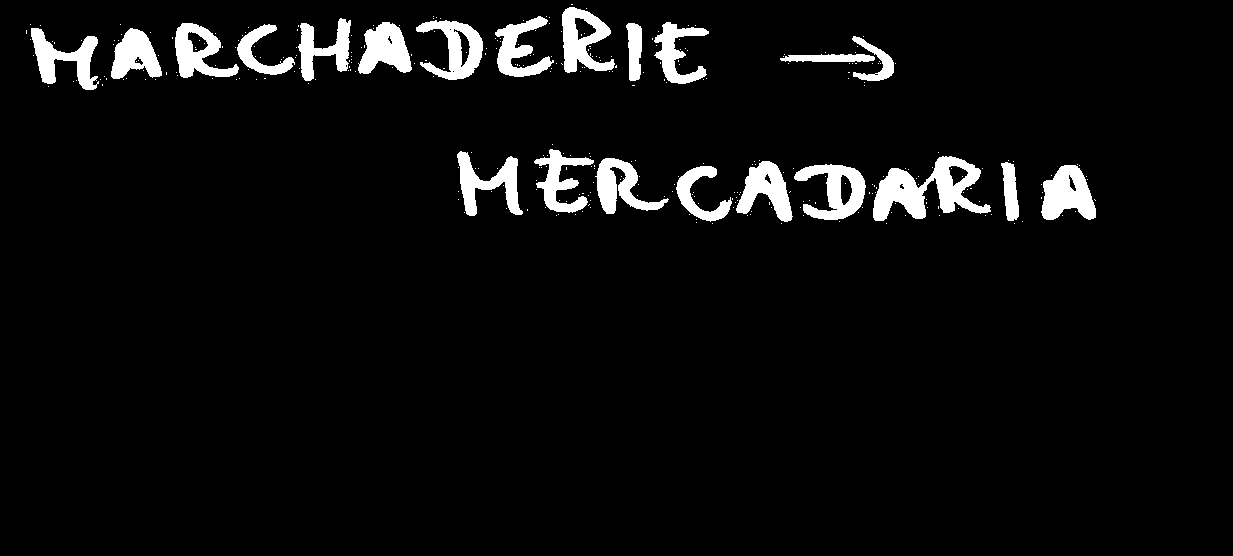 MARCHADERIE →
MERCADARIA